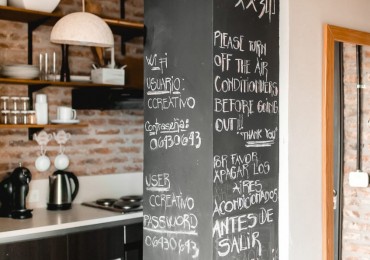 Wifi
USUARIO:
CCREATIVO
Contraseña:
06430643
USER
CCREATIVO
PASSWORD
06430643
PLEASE TURN
OFF THE AIR
CONDITIONERS
BEFORE GOING
OUT!!
"THANK YOU"
POR FAVOR
APAGAR LOS
AIRES
ACONDICIONADOS
ANTES DE
SALIR